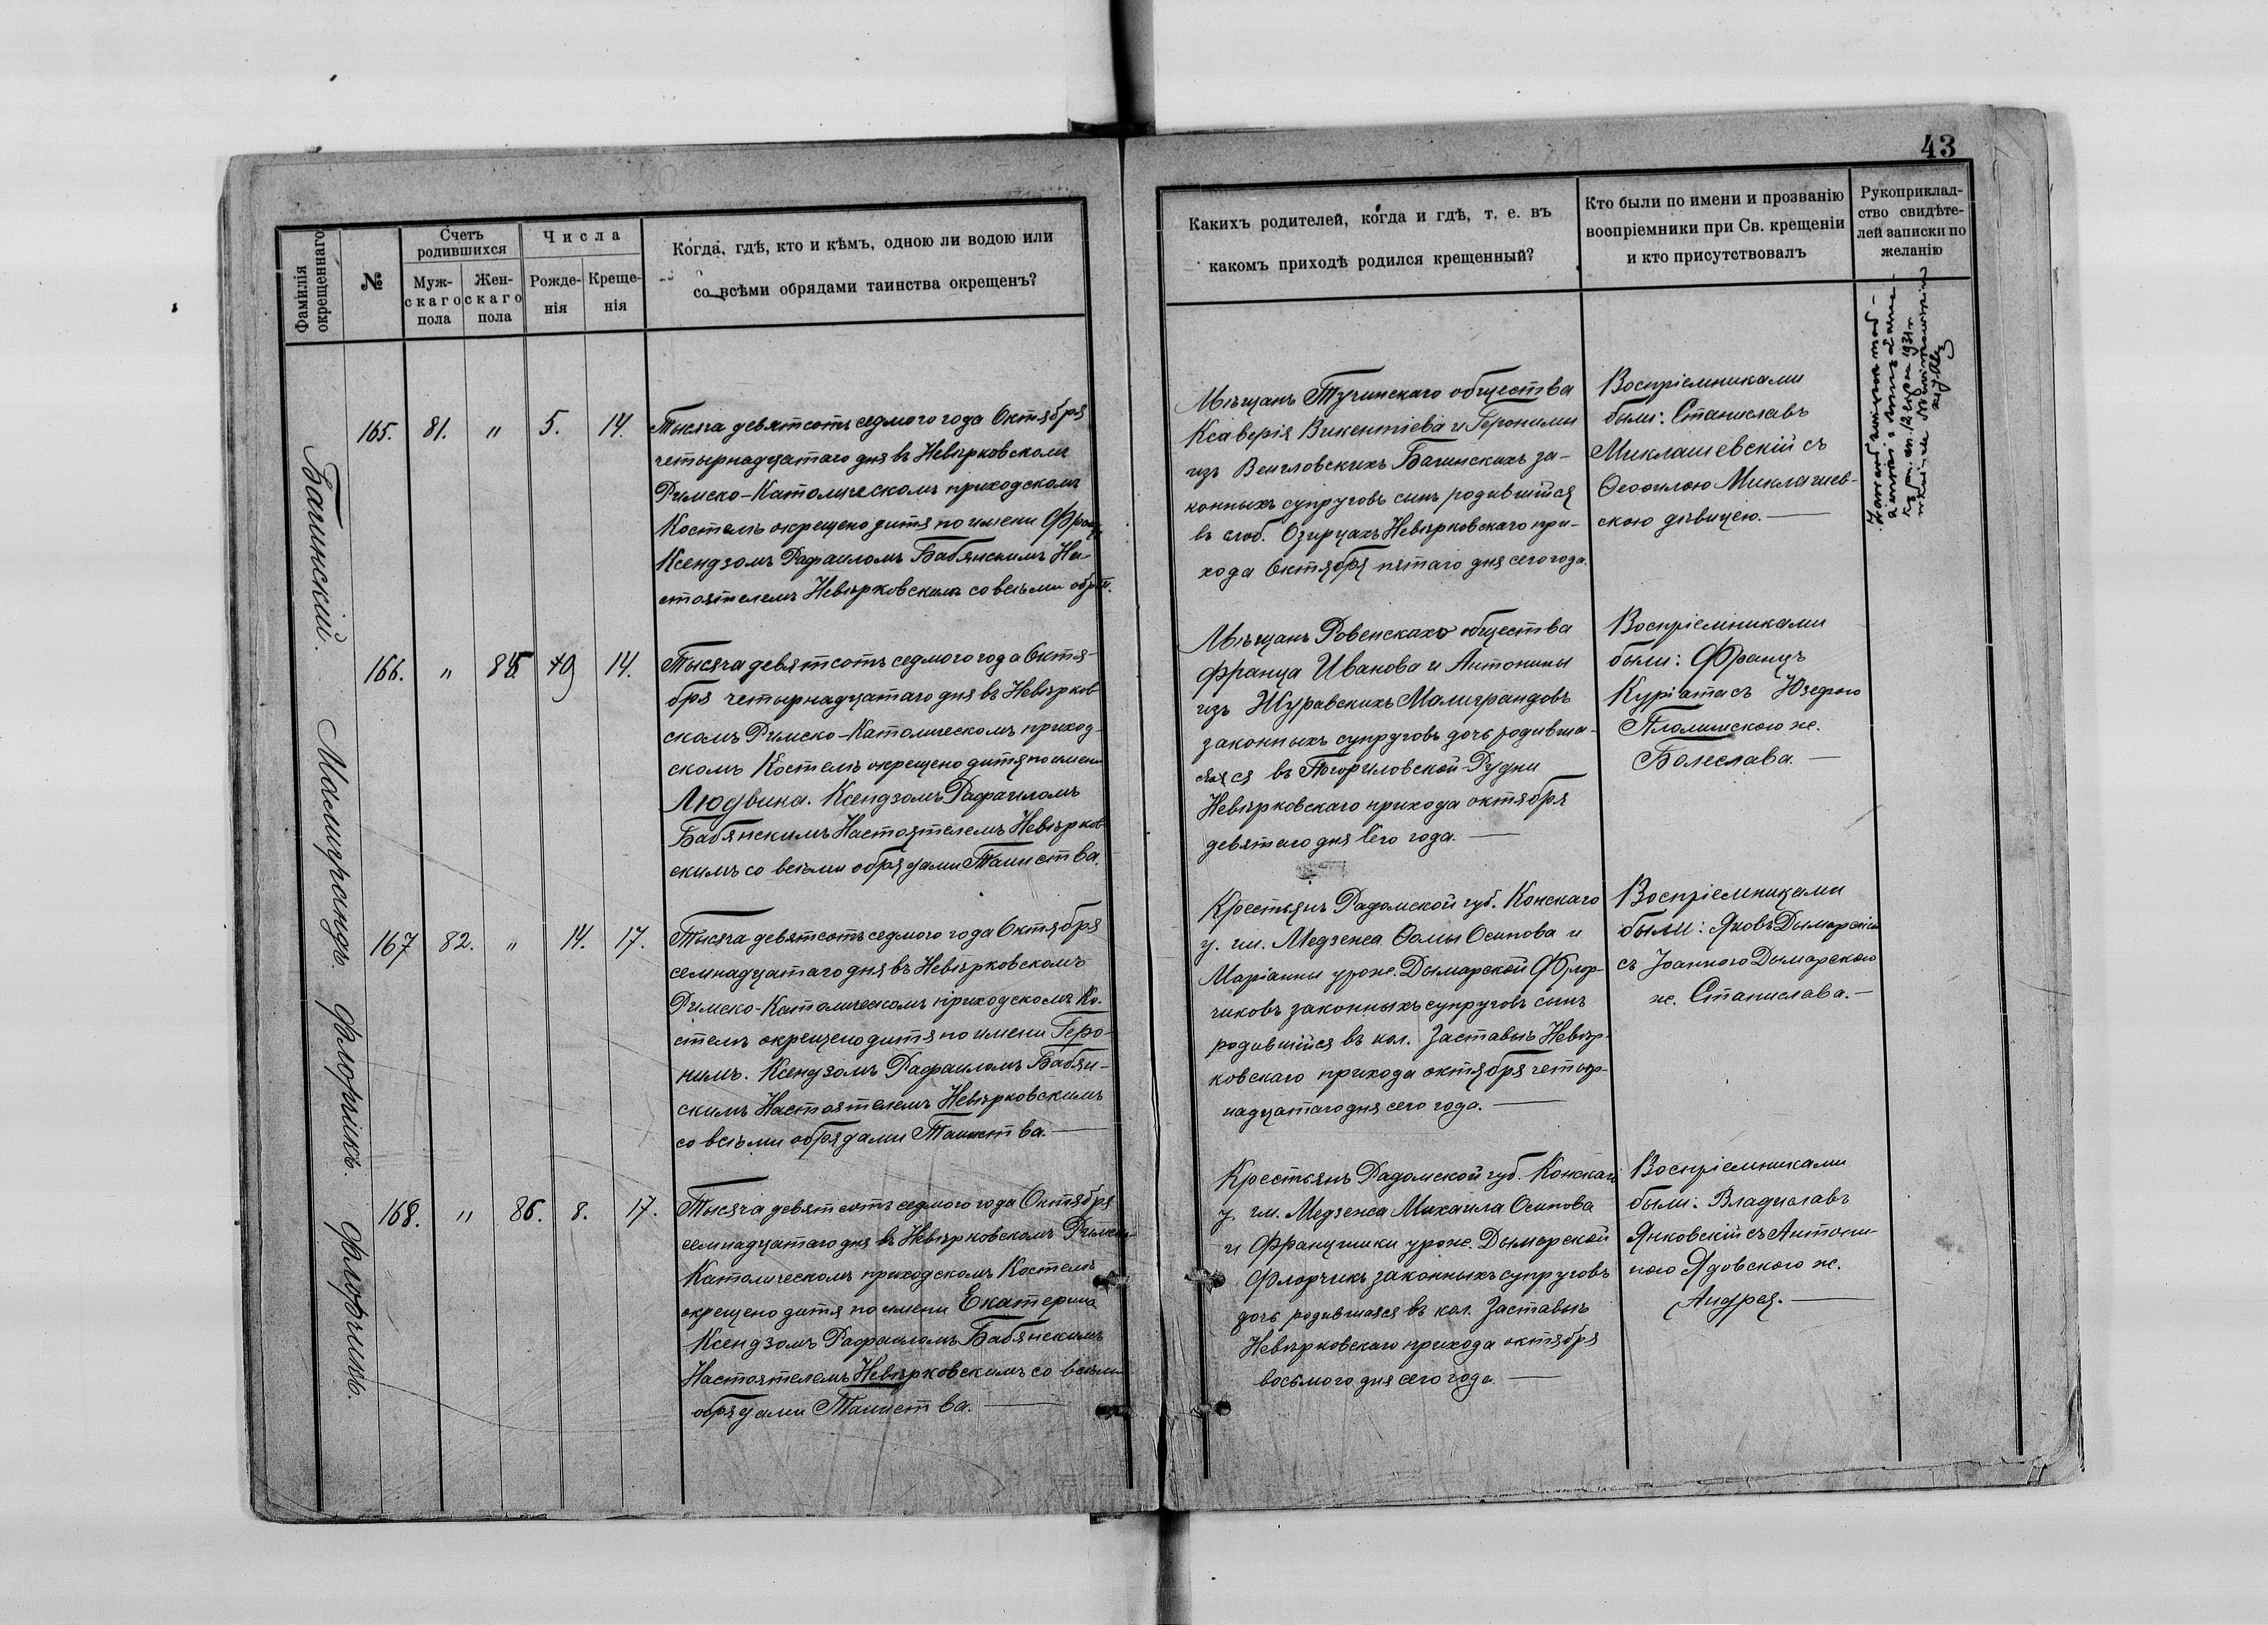 43
Фамилія окрещеннаго
№
Счетъ родившихся
Муж-
скаго
пола
Жен-
скаго
пола
Числа
Рожде-
нія
Креще-
нія
Когда, гдѣ, кто и кѣмъ, одною ли водою или
со всѣми обрядами таинства окрещенъ?
Какихъ родителей, когда и гдѣ, т. е. въ
какомъ приходѣ родился крещенный?
Кто были по имени и прозванію
воспріемники при Св. крещеніи
и кто присутствовалъ
Рукоприклад-
ство свидѣте-
лей записки по
желанію
Багинскій.
165. 81. " 5. 14.
Тысяча девятсотъ седмого года Октября
четырнадцатаго дня въ Невѣрковскомъ
Римско-Католическомъ приходскомъ
Костелѣ окрещено дитя по имени Францъ
Ксендзомъ Рафаиломъ Бабянскимъ На-
стоятелемъ Невѣрковскимъ со всѣми обр. Т.
Мѣщанъ Тучинскаго общества
Ксаверія Викентіева и Геронимы
изъ Венгловскихъ Багинскихъ за-
конныхъ супруговъ сынъ родившійся
въ слоб. Озирцахъ Невѣрковскаго при-
хода Октября пятаго дня сего года.
Воспріемниками
были: Станиславъ
Миклашевскій съ
Ѳеофилою Миклашев-
скою дѣвицею.
Малиграндъ.
166. " 85. 9 14.
Тысяча девятсотъ седмого года Октя-
бря четырнадцатаго дня въ Невѣрков
скомъ Римско-Католическомъ приход-
скомъ Костелѣ окрещено дитя по имени
Людвина. Ксендзомъ Рафаиломъ
Бабянскимъ Настоятелемъ Невѣрков
скимъ со всѣми обрядами Таинства.
Мѣщанъ Ровенскаго общества
Франца Иванова и Антонины
изъ Журавскихъ Малиграндовъ
законныхъ супруговъ дочь родивша-
яся въ Погориловской-Рудни
Невѣрковскаго прихода октября
девятаго дня Сего года.
Воспріемниками
были: Францъ
Куріата съ Юзефою
Пломинскою ж.
Болеслава.
Флорчикъ.
167 82. " 14. 17.
Тысяча девятсотъ седмого года Октября
семнадцатаго дня въ Невѣрковскомъ
Римско-Католическомъ приходскомъ Ко-
стелѣ окрещено дитя по имени Геро-
нимъ. Ксендзомъ Рафаиломъ Бабян-
скимъ Настоятелемъ Невѣрковскимъ
со всѣми обрядами Таинства.
Крестьянъ Радомской губ. Конскаго
у. гм. Медзежа Ѳомы Осипова и
Маріанны урож. Дымарской Флор-
чиковъ законныхъ супруговъ сынъ
родившійся въ кол. Заставьѣ Невѣр-
ковскаго прихода октября четыр-
надцатаго дня сего года.
Воспріемниками
были: Яковъ Дымарскій
съ Іоанною Дымарскою
ж. Станислава.
Флорчикъ.
168. " 86. 8. 17.
Тысяча девятсотъ седмого года Октября
семнадцатаго дня въ Невѣрковскомъ Римско-
Католическомъ приходскомъ Костелѣ
окрещено дитя по имени Екатерина
Ксендзомъ Рафаиломъ Бабянскимъ
Настоятелемъ Невѣрковскимъ со всѣми
обрядами Таинства.
Крестьянъ Радомской губ. Конскаго
у. гм. Медзежа Михаила Осипова
и Францишки урож. Дымарской
Флорчикъ законныхъ супруговъ
дочь родившаяся въ кол. Заставьѣ
Невѣрковскаго прихода октября
восьмого дня сего года.
Воспріемниками
были: Владиславъ
Янковскій съ Антони-
ною Ядовскою ж.
Андрея.